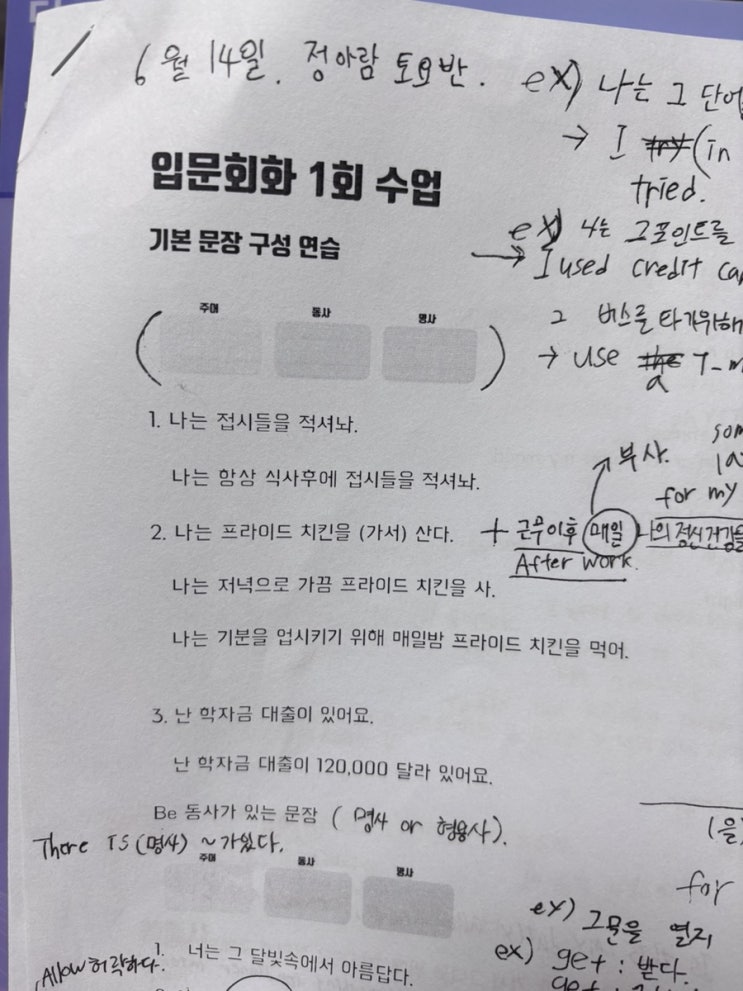 6월 14일. 정아람 토요반.
ex) 나는 그 단어
→ I try (in
tried.
입문회화 1회 수업
기본 문장 구성 연습
ex) 나는 그포인트를
→ I used credit
그 버스를 타기위해
→ use the a T-m
주어 동사 명사
1. 나는 접시들을 적셔놔.
나는 항상 식사후에 접시들을 적셔놔.
부사.
for my
2. 나는 프라이드 치킨을 (가서) 산다.
+ 근무이후 매일 나의 정신건강을
After work.
나는 저녁으로 가끔 프라이드 치킨을 사.
나는 기분을 업시키기 위해 매일밤 프라이드 치킨을 먹어.
3. 난 학자금 대출이 있어요.
난 학자금 대출이 120,000 달라 있어요.
Be 동사가 있는 문장 ( 명사 or 형용사).
(을)
There IS (명사) ~가있다.
주어 동사 명사
for
ex) 그문을 열지
1. 너는 그 달빛속에서 아름답다.
Allow허락하다.
ex) get : 받다.